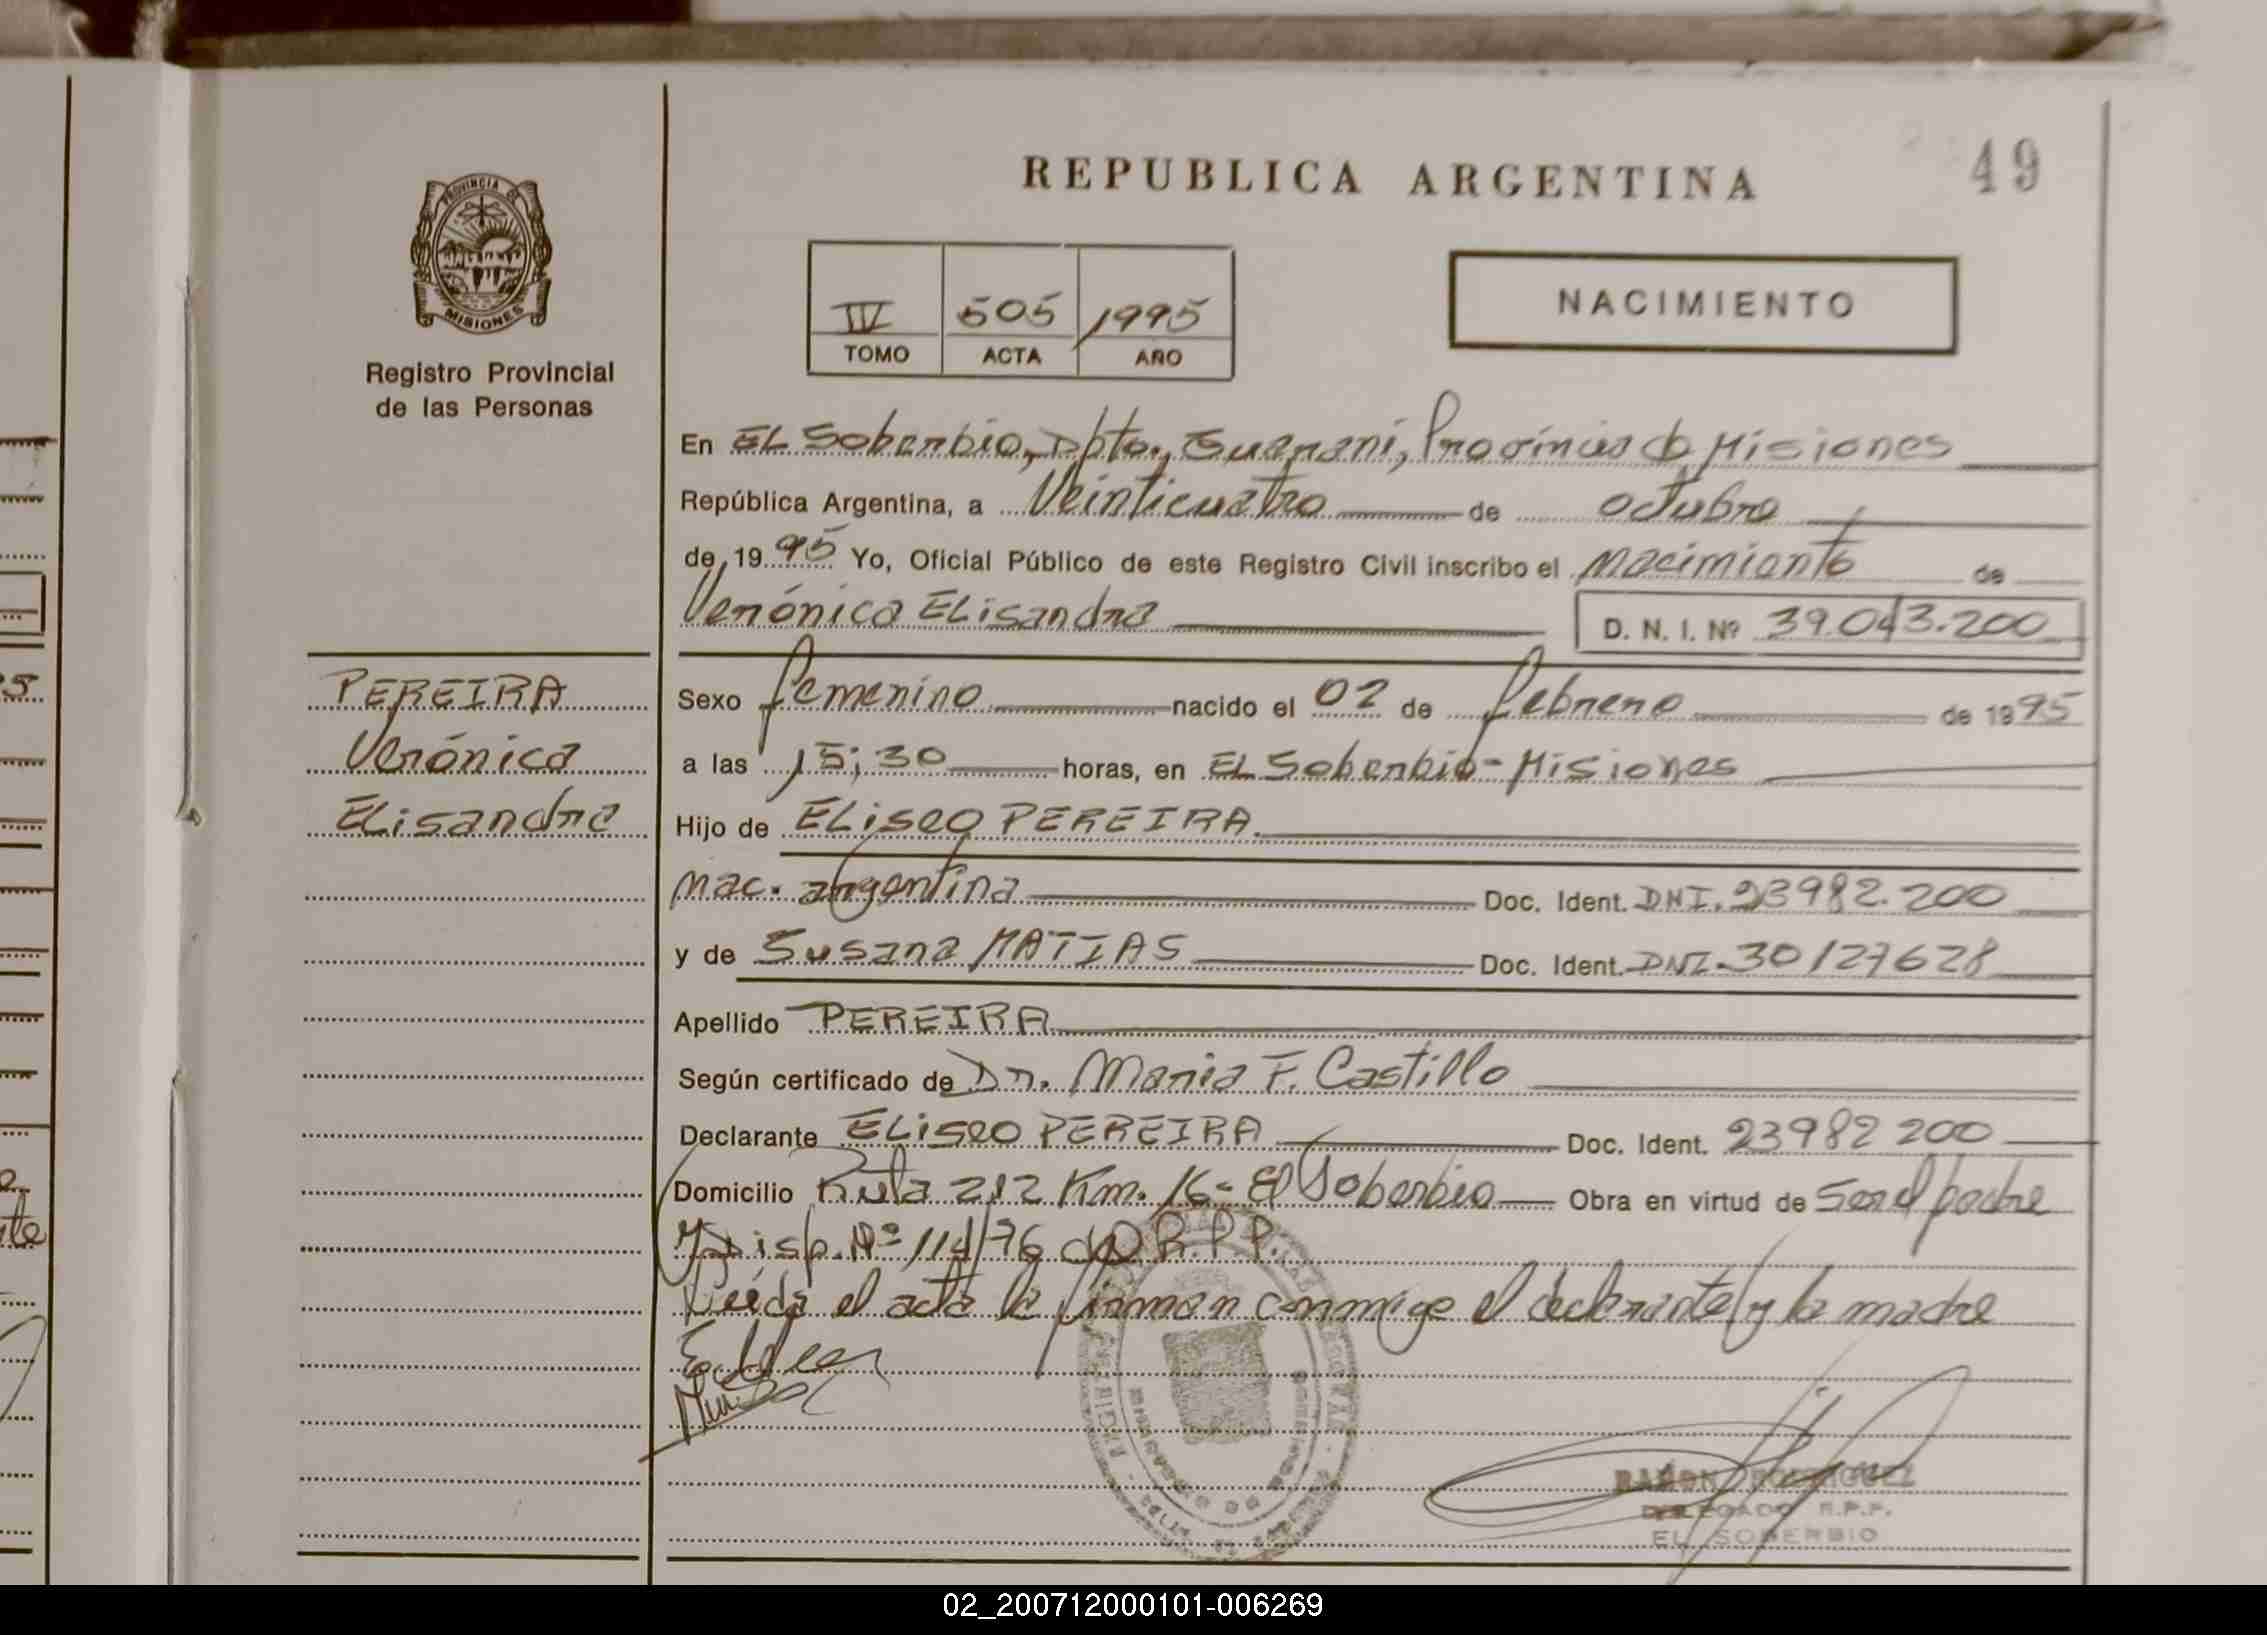 REPUBLICA ARGENTINA
49
PROVINCIA DE
MISIONES
Registro Provincial
de las Personas
IV 505 1995
TOMO ACTA AÑO
NACIMIENTO
En EL Soberbio, Dpto. Guaraní, Provincia de Misiones
República Argentina, a Veinticuatro de octubre
de 1995 Yo, Oficial Público de este Registro Civil inscribo el nacimiento de
Verónica ELisandra D. N. I. Nº 39.043.200
PEREIRA
Verónica
ELisandra
Sexo femenino nacido el 02 de febrero de 1995
a las 15;30 horas, en EL Soberbio-Misiones
Hijo de ELiseo PEREIRA
nac. argentina Doc. Ident. DNI. 23982.200
y de Susana MATIAS Doc. Ident. DNI-30127628
Apellido PEREIRA
Según certificado de Dr. Maria F. Castillo
Declarante ELiseo PEREIRA Doc. Ident. 23982 200
Domicilio Ruta 212 Km. 16- El Soberbio Obra en virtud de ser el padre
y Disp. Nº 114/76 del R.P.P.
Leída el acta la firman conmigo el declarante y la madre
RAMON RODRIGUEZ
DELEGADO R.P.P.
EL SOBERBIO
02_200712000101-006269